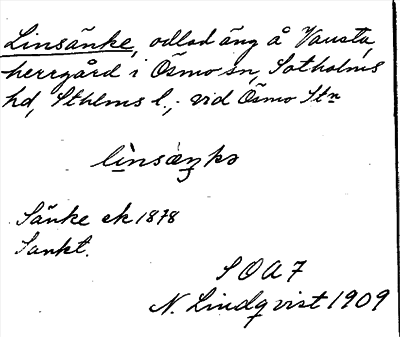 Linsänke, odlad äng å Vansta,
herrgård i Ösmo sn, Sotholms
hd, Sthlms l.; vid Ösmo Stn
lìnsæŋkə
Sänke ek 1878
Sankt.
S O A 7
N. Lindqvist 1909